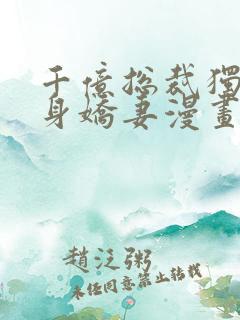 千億總裁獨
身嬌妻漫畫
趙泛粥
未经同意禁止转载